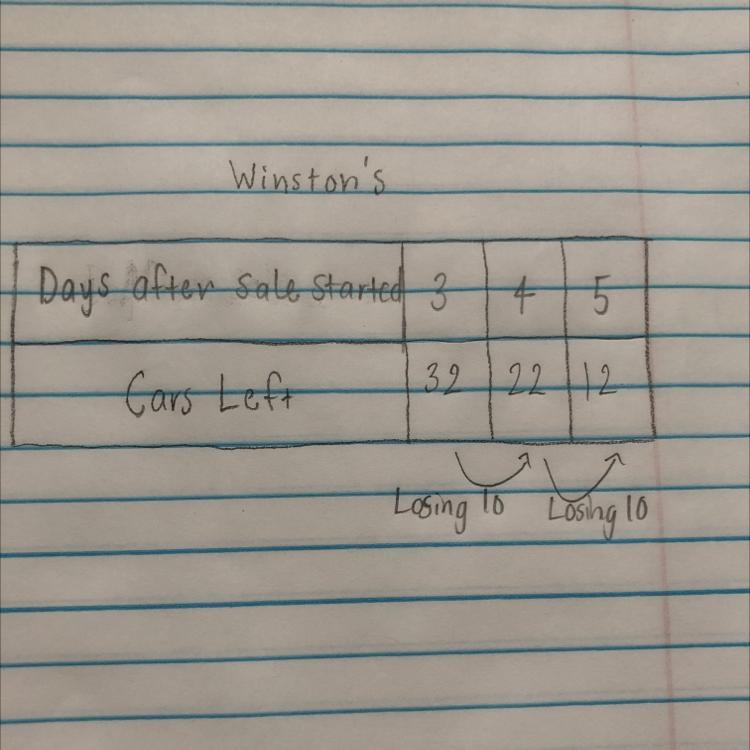 Winston's
Days after Sale Started 3 4 5
Cars Left 32 22 12
Losing 10 Losing 10